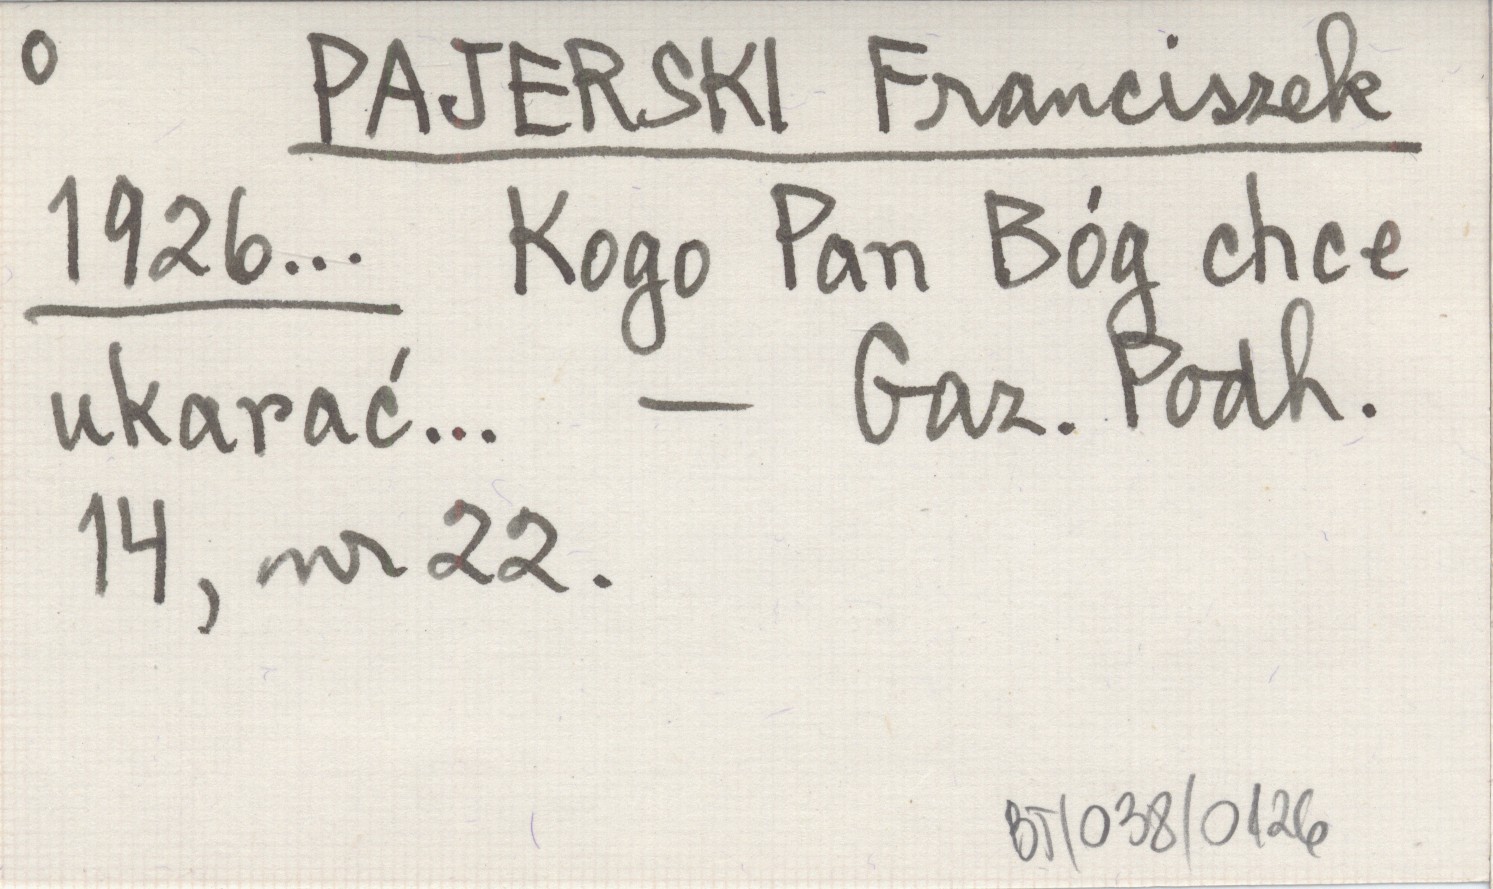 o PAJERSKI Franciszek
1926... Kogo Pan Bóg chce
ukarać... — Gaz. Podh.
14, nr 22.
BJ/038/0126